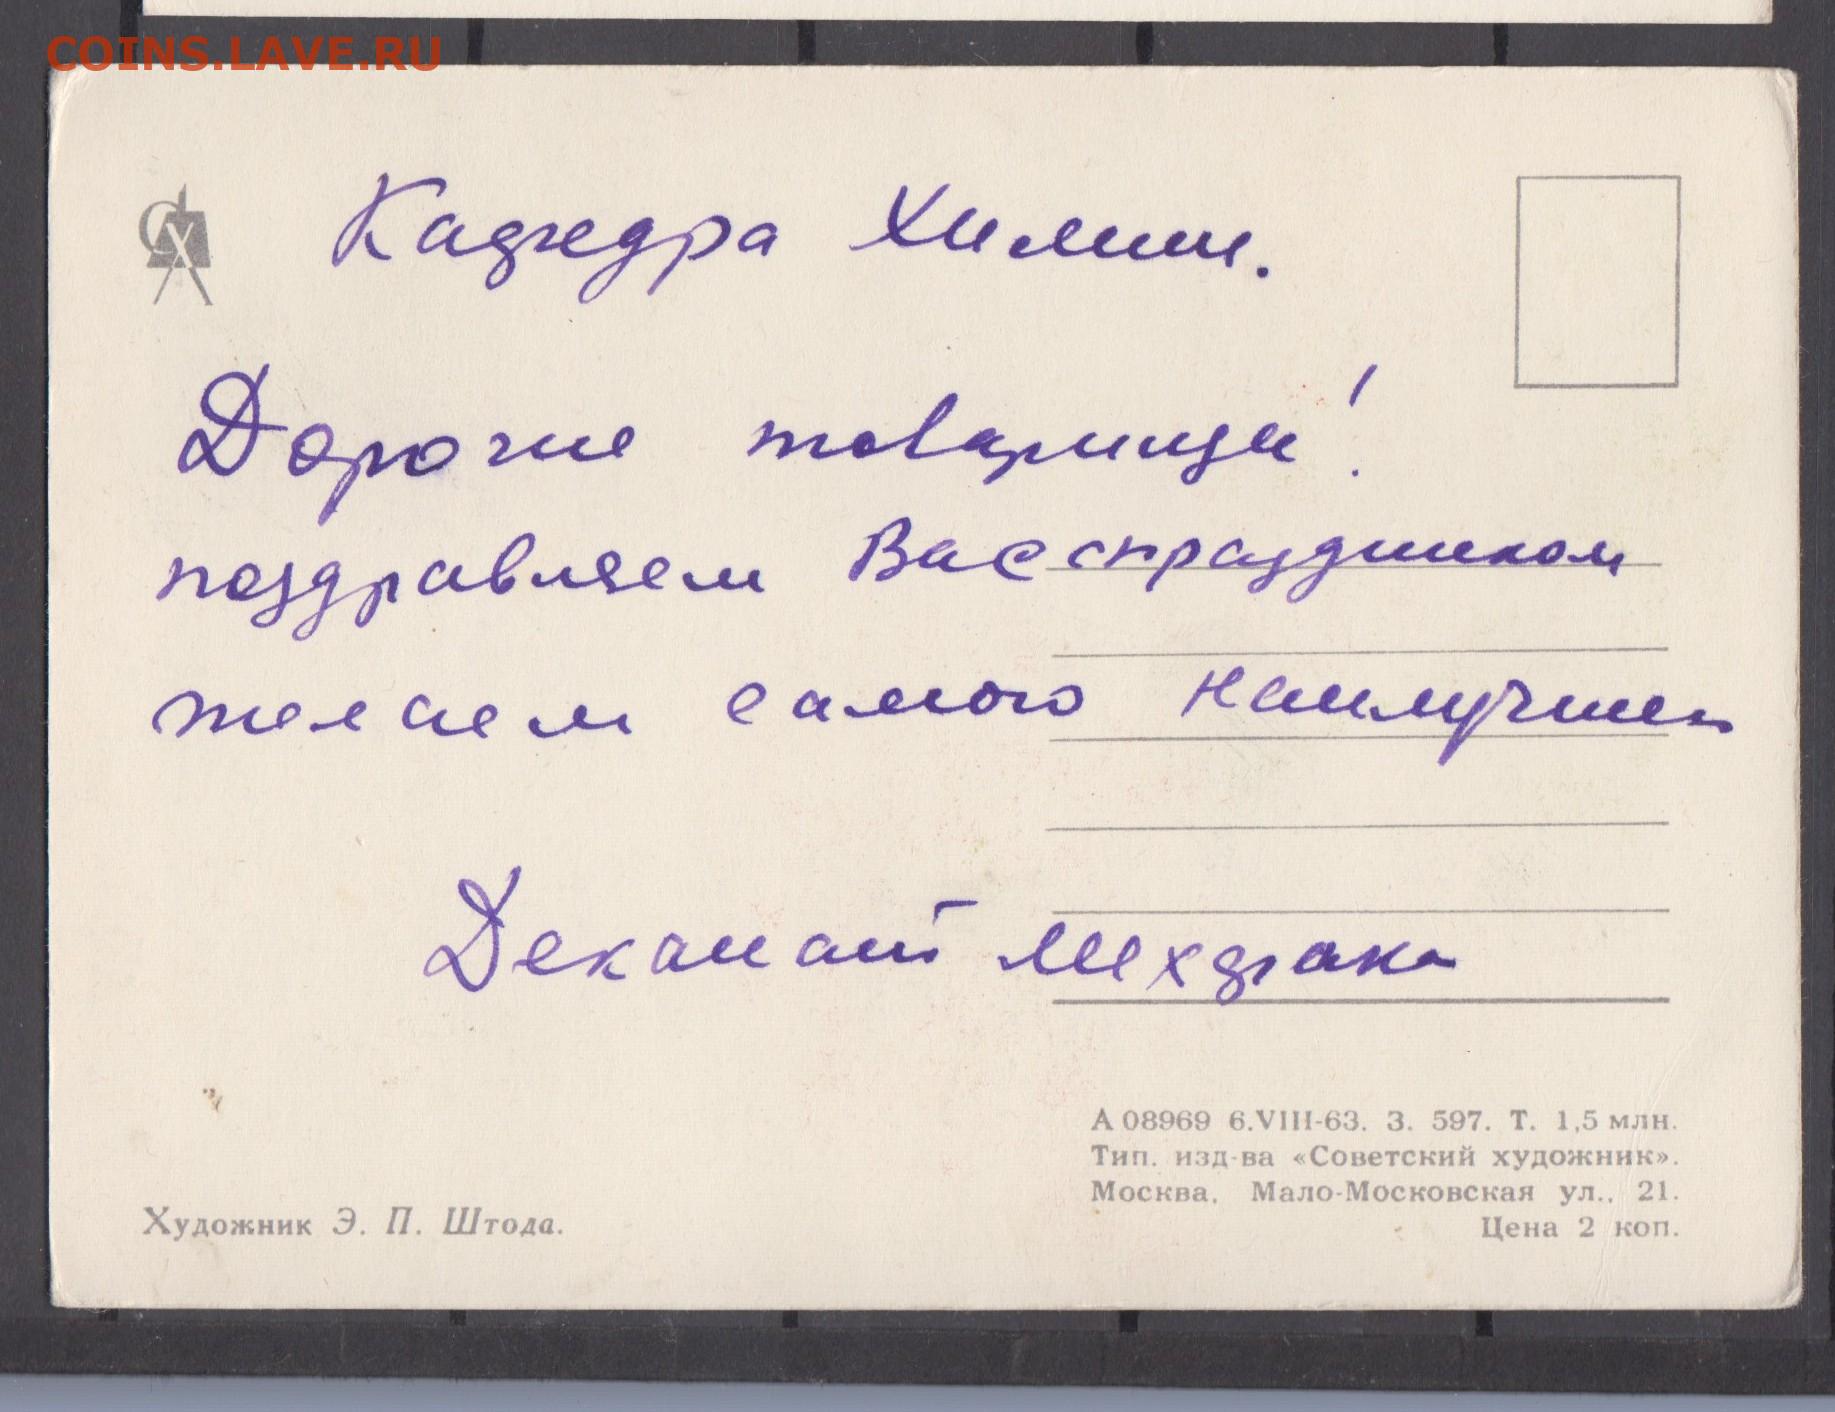 COINS.LAVE.RU
СХ
Кафедра Химии.
Дорогие товарищи!
поздравляем Вас с праздником
желаем самого наилучшего
Деканат Мехфака
А 08969 6.VIII-63. З. 597. Т. 1,5 млн.
Тип. изд-ва «Советский художник».
Москва, Мало-Московская ул., 21.
Цена 2 коп.
Художник Э. П. Штода.